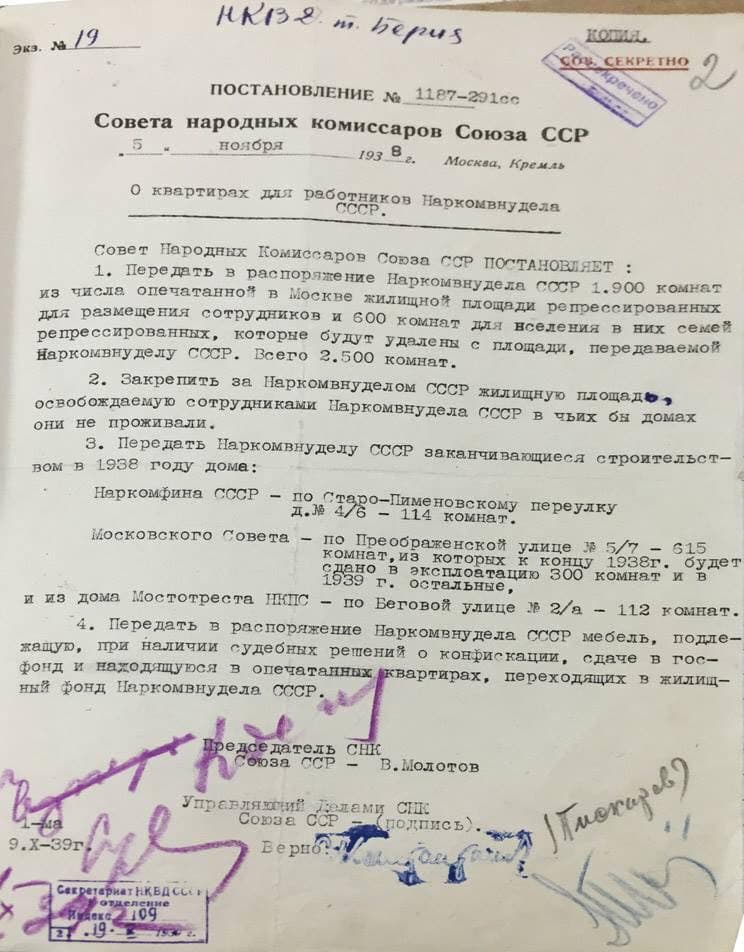 НКВД т. Берия
Экз. № 19
КОПИЯ.
СОВ. СЕКРЕТНО
2
Рассекречено
ПОСТАНОВЛЕНИЕ № 1187-291сс
Совета народных комиссаров Союза ССР
„ 5 „ ноября 1938 г. Москва, Кремль
О квартирах для работников Наркомвнудела
СССР.
Совет Народных Комиссаров Союза ССР ПОСТАНОВЛЯЕТ :
1. Передать в распоряжение Наркомвнудела СССР 1.900 комнат
из числа опечатанной в Москве жилищной площади репрессированных
для размещения сотрудников и 600 комнат для вселения в них семей
репрессированных, которые будут удалены с площади, передаваемой
Наркомвнуделу СССР. Всего 2.500 комнат.
2. Закрепить за Наркомвнуделом СССР жилищную площадь,
освобождаемую сотрудниками Наркомвнудела СССР в чьих бы домах
они не проживали.
3. Передать Наркомвнуделу СССР заканчивающиеся строительст-
вом в 1938 году дома:
Наркомфина СССР – по Старо-Пименовскому переулку
д.№ 4/6 – 114 комнат.
Московского Совета – по Преображенской улице № 5/7 – 615
комнат,из которых к концу 1938г. будет
сдано в эксплоатацию 300 комнат и в
1939 г. остальные,
и из дома Мостотреста НКПС – по Беговой улице № 2/а – 112 комнат.
4. Передать в распоряжение Наркомвнудела СССР мебель, подле-
жащую, при наличии судебных решений о конфискации, сдаче в гос-
фонд и находящуюся в опечатанных квартирах, переходящих в жилищ-
ный фонд Наркомвнудела СССР.
Председатель СНК
Союза ССР – В.Молотов
Управляющий Делами СНК
Союза ССР – (подпись).
1-ма
9.X-39г.
Верно:
Секретариат НКВД СССР
отделение
Индекс 109
19